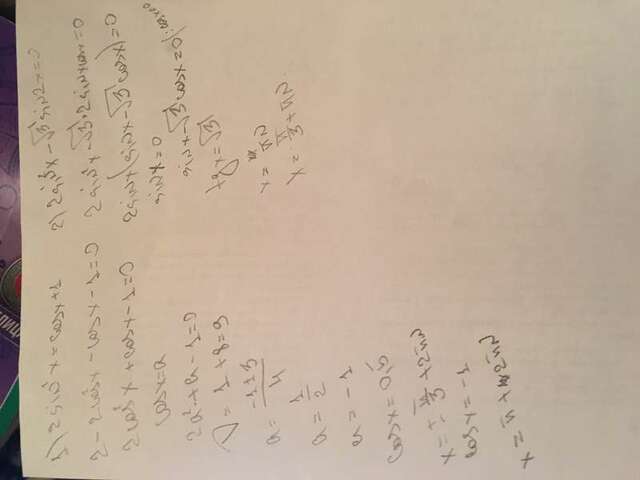 1) 2sin²x = cosx+1
2-2cos²x-cosx-1=0
2cos²x+cosx-1=0
cosx=a
2a²+a-1=0
D=1+8=9
a = (-1±3)/4
a = 1/2
a = -1
cosx=0,5
x=±π/3+2πn
cosx=-1
x=π+2πn
2) 2sin²x-√3sin2x=0
2sin²x-√3·2sinxcosx=0
2sinx(sinx-√3cosx)=0
sinx=0
sinx-√3cosx=0 |:cosx≠0
tgx=√3
x=πn
x=π/3+πn.